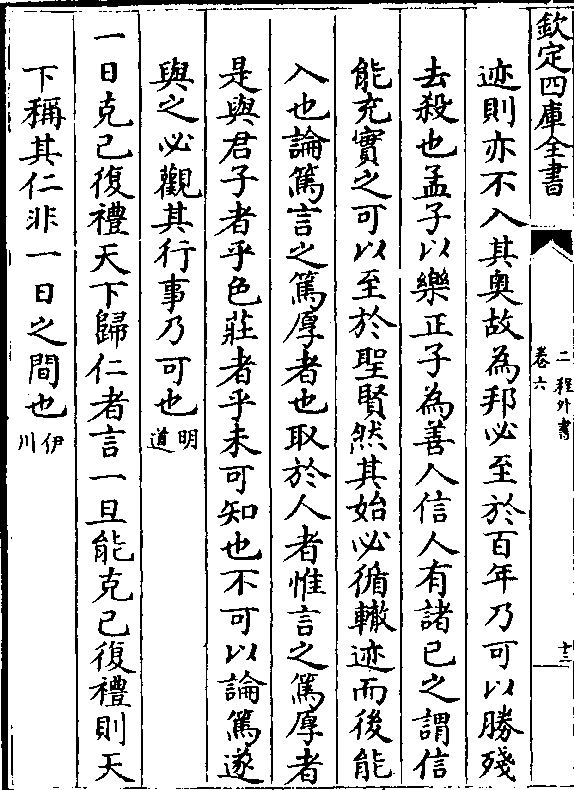 欽定四庫全書
二程外書
卷六
十三
迹則亦不入其奥故為邦必至於百年乃可以勝殘
去殺也孟子以樂正子為善人信人有諸已之謂信
能充實之可以至於聖賢然其始必循轍迹而後能
入也論篤言之篤厚者也取於人者惟言之篤厚者
是與君子者乎色莊者乎未可知也不可以論篤遂
與之必觀其行事乃可也明道
一日克己復禮天下歸仁者言一旦能克己復禮則天
下稱其仁非一日之間也伊川